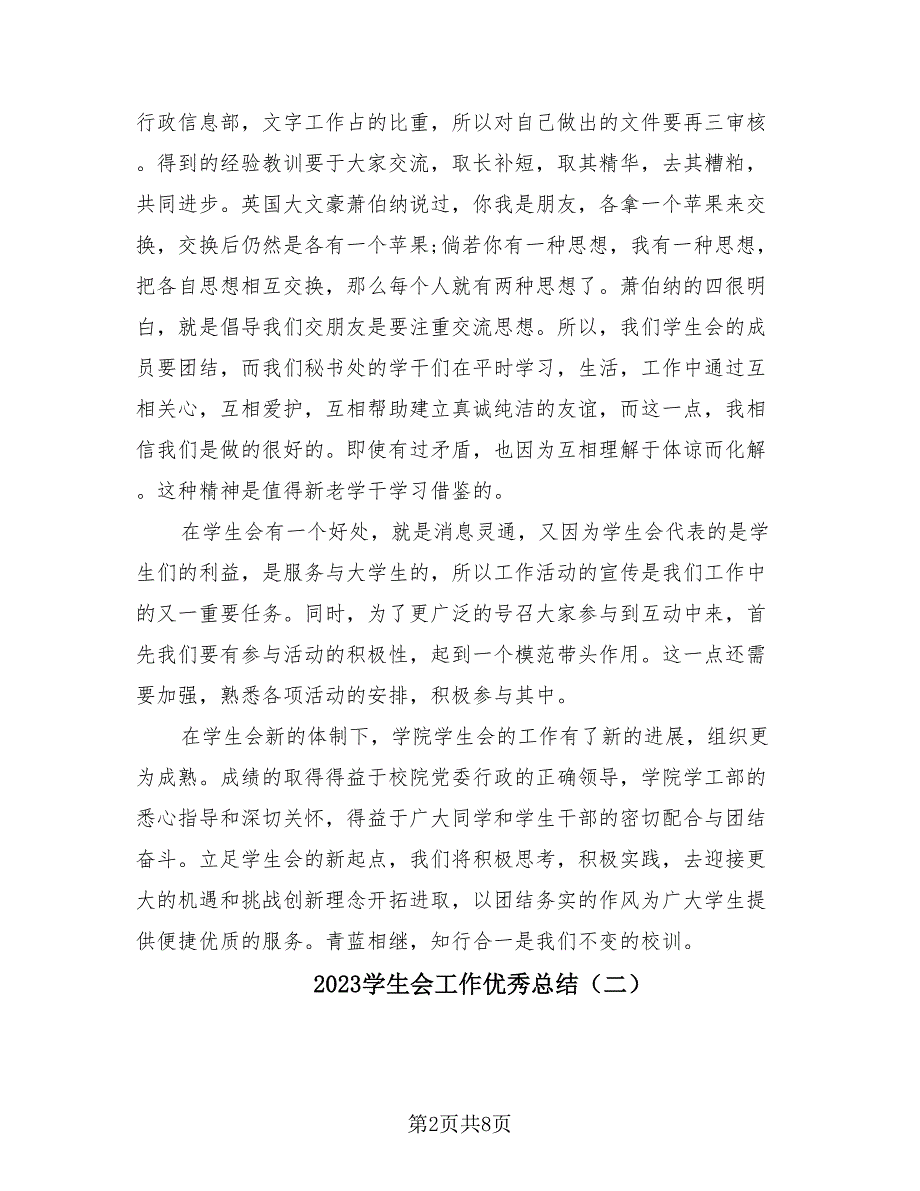 行政信息部，文字工作占的比重，所以对自己做出的文件要再三审核
。得到的经验教训要于大家交流，取长补短，取其精华，去其糟粕，
共同进步。英国大文豪萧伯纳说过，你我是朋友，各拿一个苹果来交
换，交换后仍然是各有一个苹果;倘若你有一种思想，我有一种思想，
把各自思想相互交换，那么每个人就有两种思想了。萧伯纳的四很明
白，就是倡导我们交朋友是要注重交流思想。所以，我们学生会的成
员要团结，而我们秘书处的学干们在平时学习，生活，工作中通过互
相关心，互相爱护，互相帮助建立真诚纯洁的友谊，而这一点，我相
信我们是做的很好的。即使有过矛盾，也因为互相理解于体谅而化解
。这种精神是值得新老学干学习借鉴的。
在学生会有一个好处，就是消息灵通，又因为学生会代表的是学
生们的利益，是服务与大学生的，所以工作活动的宣传是我们工作中
的又一重要任务。同时，为了更广泛的号召大家参与到互动中来，首
先我们要有参与活动的积极性，起到一个模范带头作用。这一点还需
要加强，熟悉各项活动的安排，积极参与其中。
在学生会新的体制下，学院学生会的工作有了新的进展，组织更
为成熟。成绩的取得得益于校院党委行政的正确领导，学院学工部的
悉心指导和深切关怀，得益于广大同学和学生干部的密切配合与团结
奋斗。立足学生会的新起点，我们将积极思考，积极实践，去迎接更
大的机遇和挑战创新理念开拓进取，以团结务实的作风为广大学生提
供便捷优质的服务。青蓝相继，知行合一是我们不变的校训。
2023学生会工作优秀总结（二）
第2页共8页